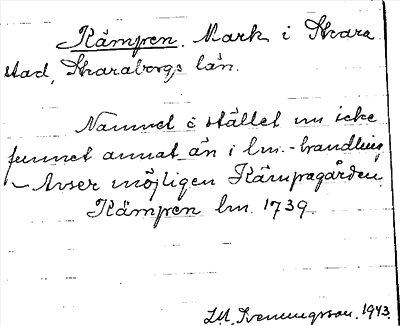 Kämpen. Mark i Skara
stad, Skaraborgs län.
Namnet å stället nu icke
funnet annat än i lm.-handling
– Avser möjligen Kämpagården
Kämpen lm. 1739
Sveningsson. 1943.